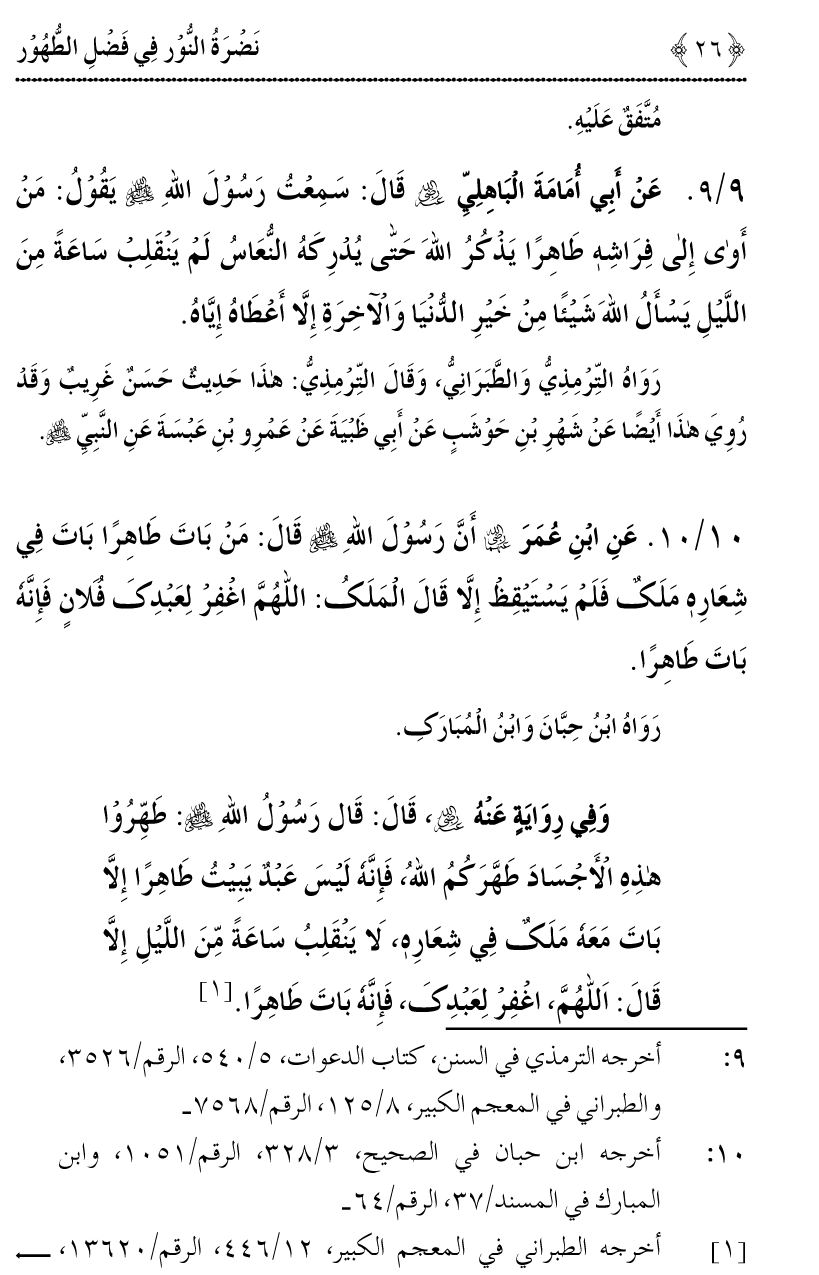 ﴿٢٦﴾ نَضْرَةُ النُّوْرِ فِي فَضْلِ الطُّهُوْرِ
مُتَّفَقٌ عَلَيْهِ.
٩/٩. عَنْ أَبِي أُمَامَةَ الْبَاهِلِيِّ رضي الله عنه قَالَ: سَمِعْتُ رَسُوْلَ اللهِ ﷺ يَقُوْلُ: مَنْ
أَوٰى إِلٰى فِرَاشِهٖ طَاهِرًا يَذْكُرُ اللهَ حَتّٰى يُدْرِكَهُ النُّعَاسُ لَمْ يَنْقَلِبْ سَاعَةً مِنَ
اللَّيْلِ يَسْأَلُ اللهَ شَيْئًا مِنْ خَيْرِ الدُّنْيَا وَالْآخِرَةِ إِلَّا أَعْطَاهُ إِيَّاهُ.
رَوَاهُ التِّرْمِذِيُّ وَالطَّبَرَانِيُّ، وَقَالَ التِّرْمِذِيُّ: هٰذَا حَدِيثٌ حَسَنٌ غَرِيبٌ وَقَدْ
رُوِيَ هٰذَا أَيْضًا عَنْ شَهْرِ بْنِ حَوْشَبٍ عَنْ أَبِي ظَبْيَةَ عَنْ عَمْرِو بْنِ عَبَسَةَ عَنِ النَّبِيِّ ﷺ.
١٠/١٠. عَنِ ابْنِ عُمَرَ رضي الله عنهما أَنَّ رَسُوْلَ اللهِ ﷺ قَالَ: مَنْ بَاتَ طَاهِرًا بَاتَ فِي
شِعَارِهٖ مَلَكٌ فَلَمْ يَسْتَيْقِظْ إِلَّا قَالَ الْمَلَكُ: اللّٰهُمَّ اغْفِرْ لِعَبْدِكَ فُلَانٍ فَإِنَّهٗ
بَاتَ طَاهِرًا.
رَوَاهُ ابْنُ حِبَّانَ وَابْنُ الْمُبَارَكِ.
وَفِي رِوَايَةٍ عَنْهُ رضي الله عنه، قَالَ: قَال رَسُوْلُ اللهِ ﷺ: طَهِّرُوْا
هٰذِهِ الْأَجْسَادَ طَهَّرَكُمُ اللهُ، فَإِنَّهٗ لَيْسَ عَبْدٌ يَبِيْتُ طَاهِرًا إِلَّا
بَاتَ مَعَهٗ مَلَكٌ فِي شِعَارِهٖ، لَا يَنْقَلِبُ سَاعَةً مِّنَ اللَّيْلِ إِلَّا
قَالَ: اَللّٰهُمَّ، اغْفِرْ لِعَبْدِكَ، فَإِنَّهٗ بَاتَ طَاهِرًا.[١]
٩: أخرجه الترمذي في السنن، كتاب الدعوات، ٥/٥٤٠، الرقم/٣٥٢٦،
والطبراني في المعجم الكبير، ٨/١٢٥، الرقم/٧٥٦٨ـ
١٠: أخرجه ابن حبان في الصحيح، ٣/٣٢٨، الرقم/١٠٥١، وابن
المبارك في المسند/٣٧، الرقم/٦٤ـ
[١] أخرجه الطبراني في المعجم الكبير، ١٢/٤٤٦، الرقم/١٣٦٢٠،